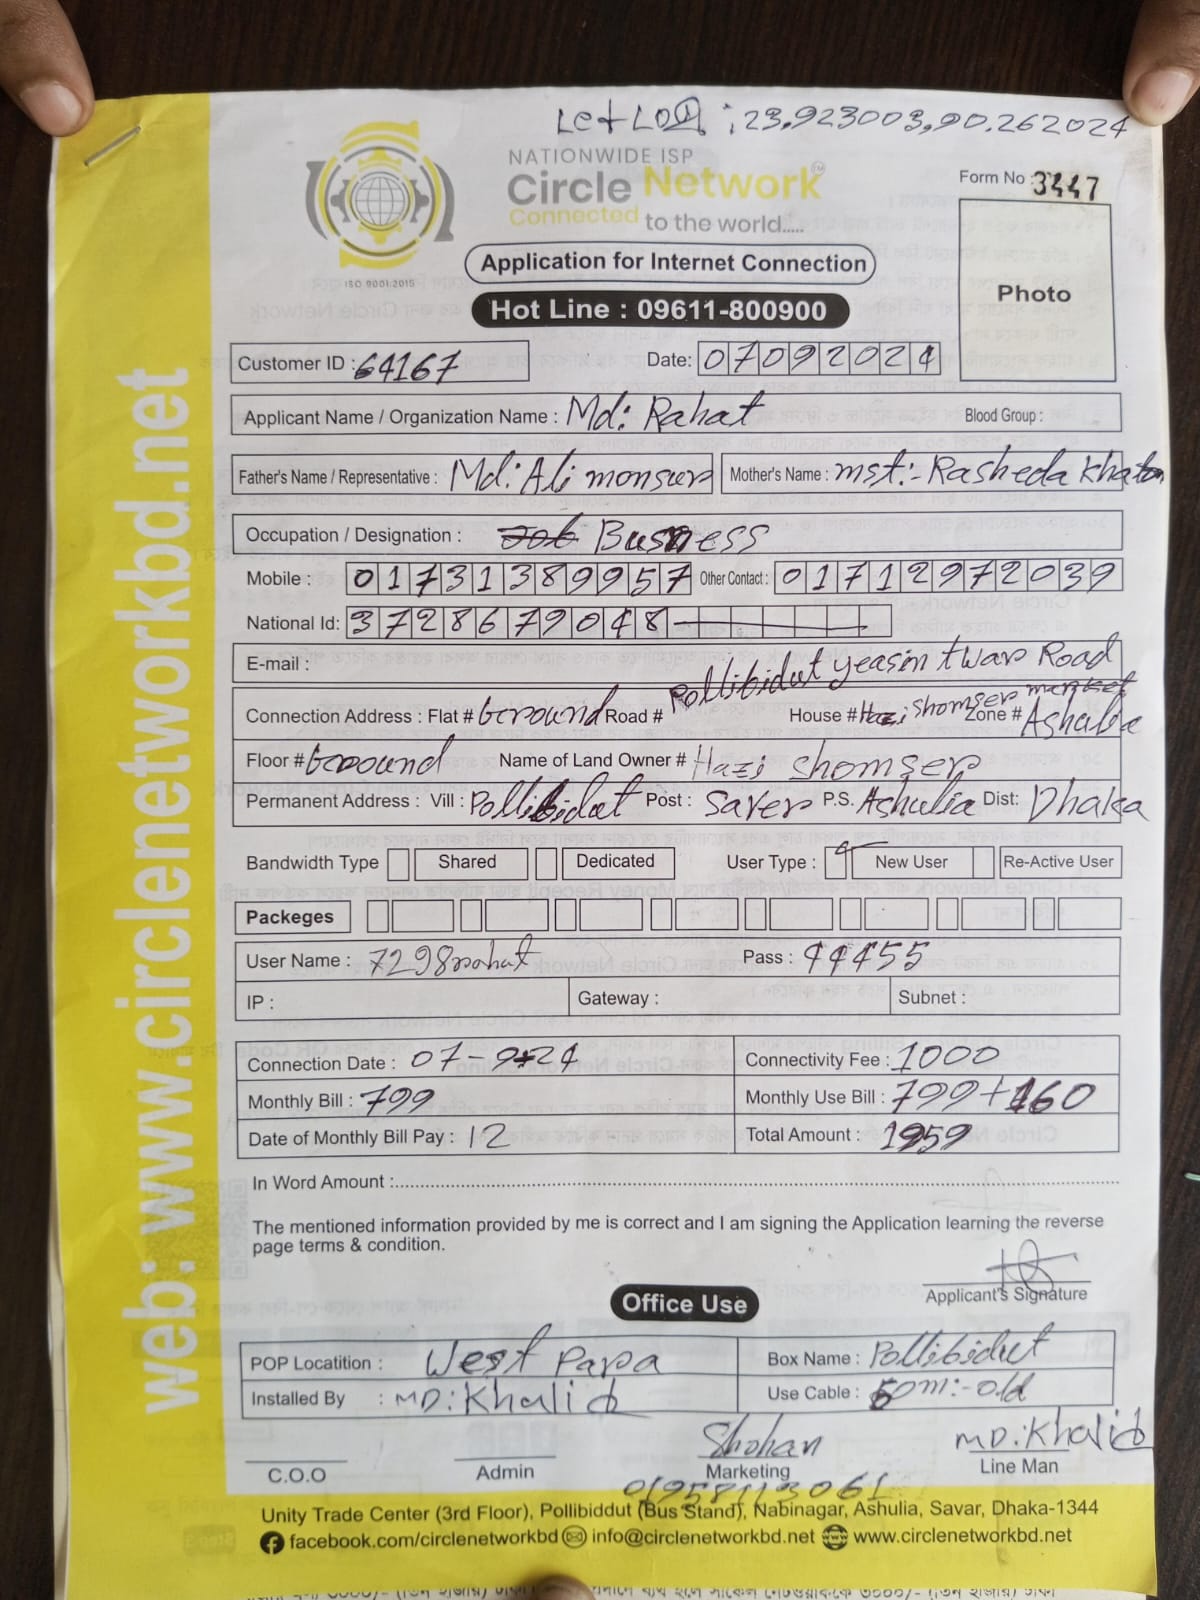 Let LOQ : 23.923003, 90.262024
NATIONWIDE ISP
Circle Network™
Connected to the world.....
ISO 9001:2015
Form No 3447
Photo
Application for Internet Connection
Hot Line : 09611-800900
Customer ID : 64167 Date: 07092024
Applicant Name / Organization Name : Md: Rahat Blood Group :
Father's Name / Representative : Md: Ali monsur Mother's Name : mst:- Rasheda Khaton
Occupation / Designation : Job Busness
Mobile : 01731389957 Other Contact : 01712972039
National Id: 3728679048
E-mail :
Pollibidut yeasin twar Road
Connection Address : Flat # Ground Road # House # Hazi shomser market Zone # Ashulia
Floor # Ground Name of Land Owner # Hazi shomser
Permanent Address : Vill : Pollibidut Post : Saver P.S. Ashulia Dist: Dhaka
Bandwidth Type Shared Dedicated User Type : New User Re-Active User
Packeges
User Name : 7298rahat Pass : 44455
IP : Gateway : Subnet :
Connection Date : 07-9-24 Connectivity Fee : 1000
Monthly Bill : 799 Monthly Use Bill : 799+160
Date of Monthly Bill Pay : 12 Total Amount : 1959
In Word Amount :
The mentioned information provided by me is correct and I am signing the Application learning the reverse
page terms & condition.
Applicant's Signature
Office Use
POP Locatition : West Para Box Name : Pollibidut
Installed By : MD: Khalid Use Cable : 50m:-old
Shohan MD: Khalid
C.O.O Admin Marketing Line Man
Unity Trade Center (3rd Floor), Pollibiddut (Bus Stand), Nabinagar, Ashulia, Savar, Dhaka-1344
facebook.com/circlenetworkbd info@circlenetworkbd.net www.circlenetworkbd.net
web: www.circlenetworkbd.net